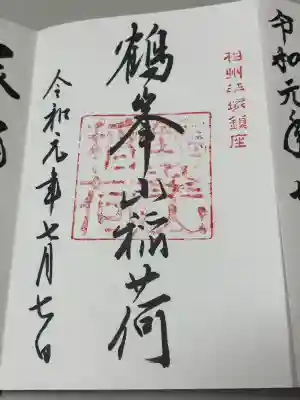 相州平塚鎮座
鶴峯山稲荷
令和元年七月七日
令和元年七